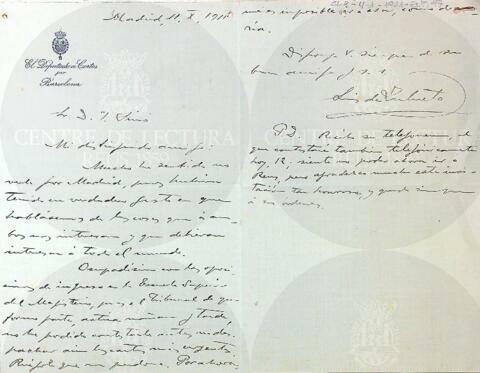 Madrid, 11, X, 1918
El Diputado a Cortes
por
Barcelona
Sr. D. J.
Mi distinguido amigo:
Mucho he sentido no
verle por Madrid, pues hubiera
tenido en verdadero gusto en que
hablásemos de las cosas que á am-
bos nos interesan y que debieran
interesar á todo el mundo.
Ocupadísimo con las oposi-
ciones de ingreso en la Escuela Superior
del Magisterio, pues el Tribunal de que
formo parte, actúa mañana y tarde,
no he podido contestarle antes ni des-
pachar aun las cartas más urgentes.
Ruégole que me perdone. Para ahora,
me es imposible ir a esa, como
ría.
Disponga V. siempre de su
buen amigo
Luis de Zulueta
P.D. Recibo su telefonema, al
que contestaré también telefónicamente
hoy, 12, siento no poder ahora ir a
Reus, pero agradezco mucho esta invi-
tación tan honrosa, y quedo siempre
á sus órdenes.
CENTRE DE LECTURA